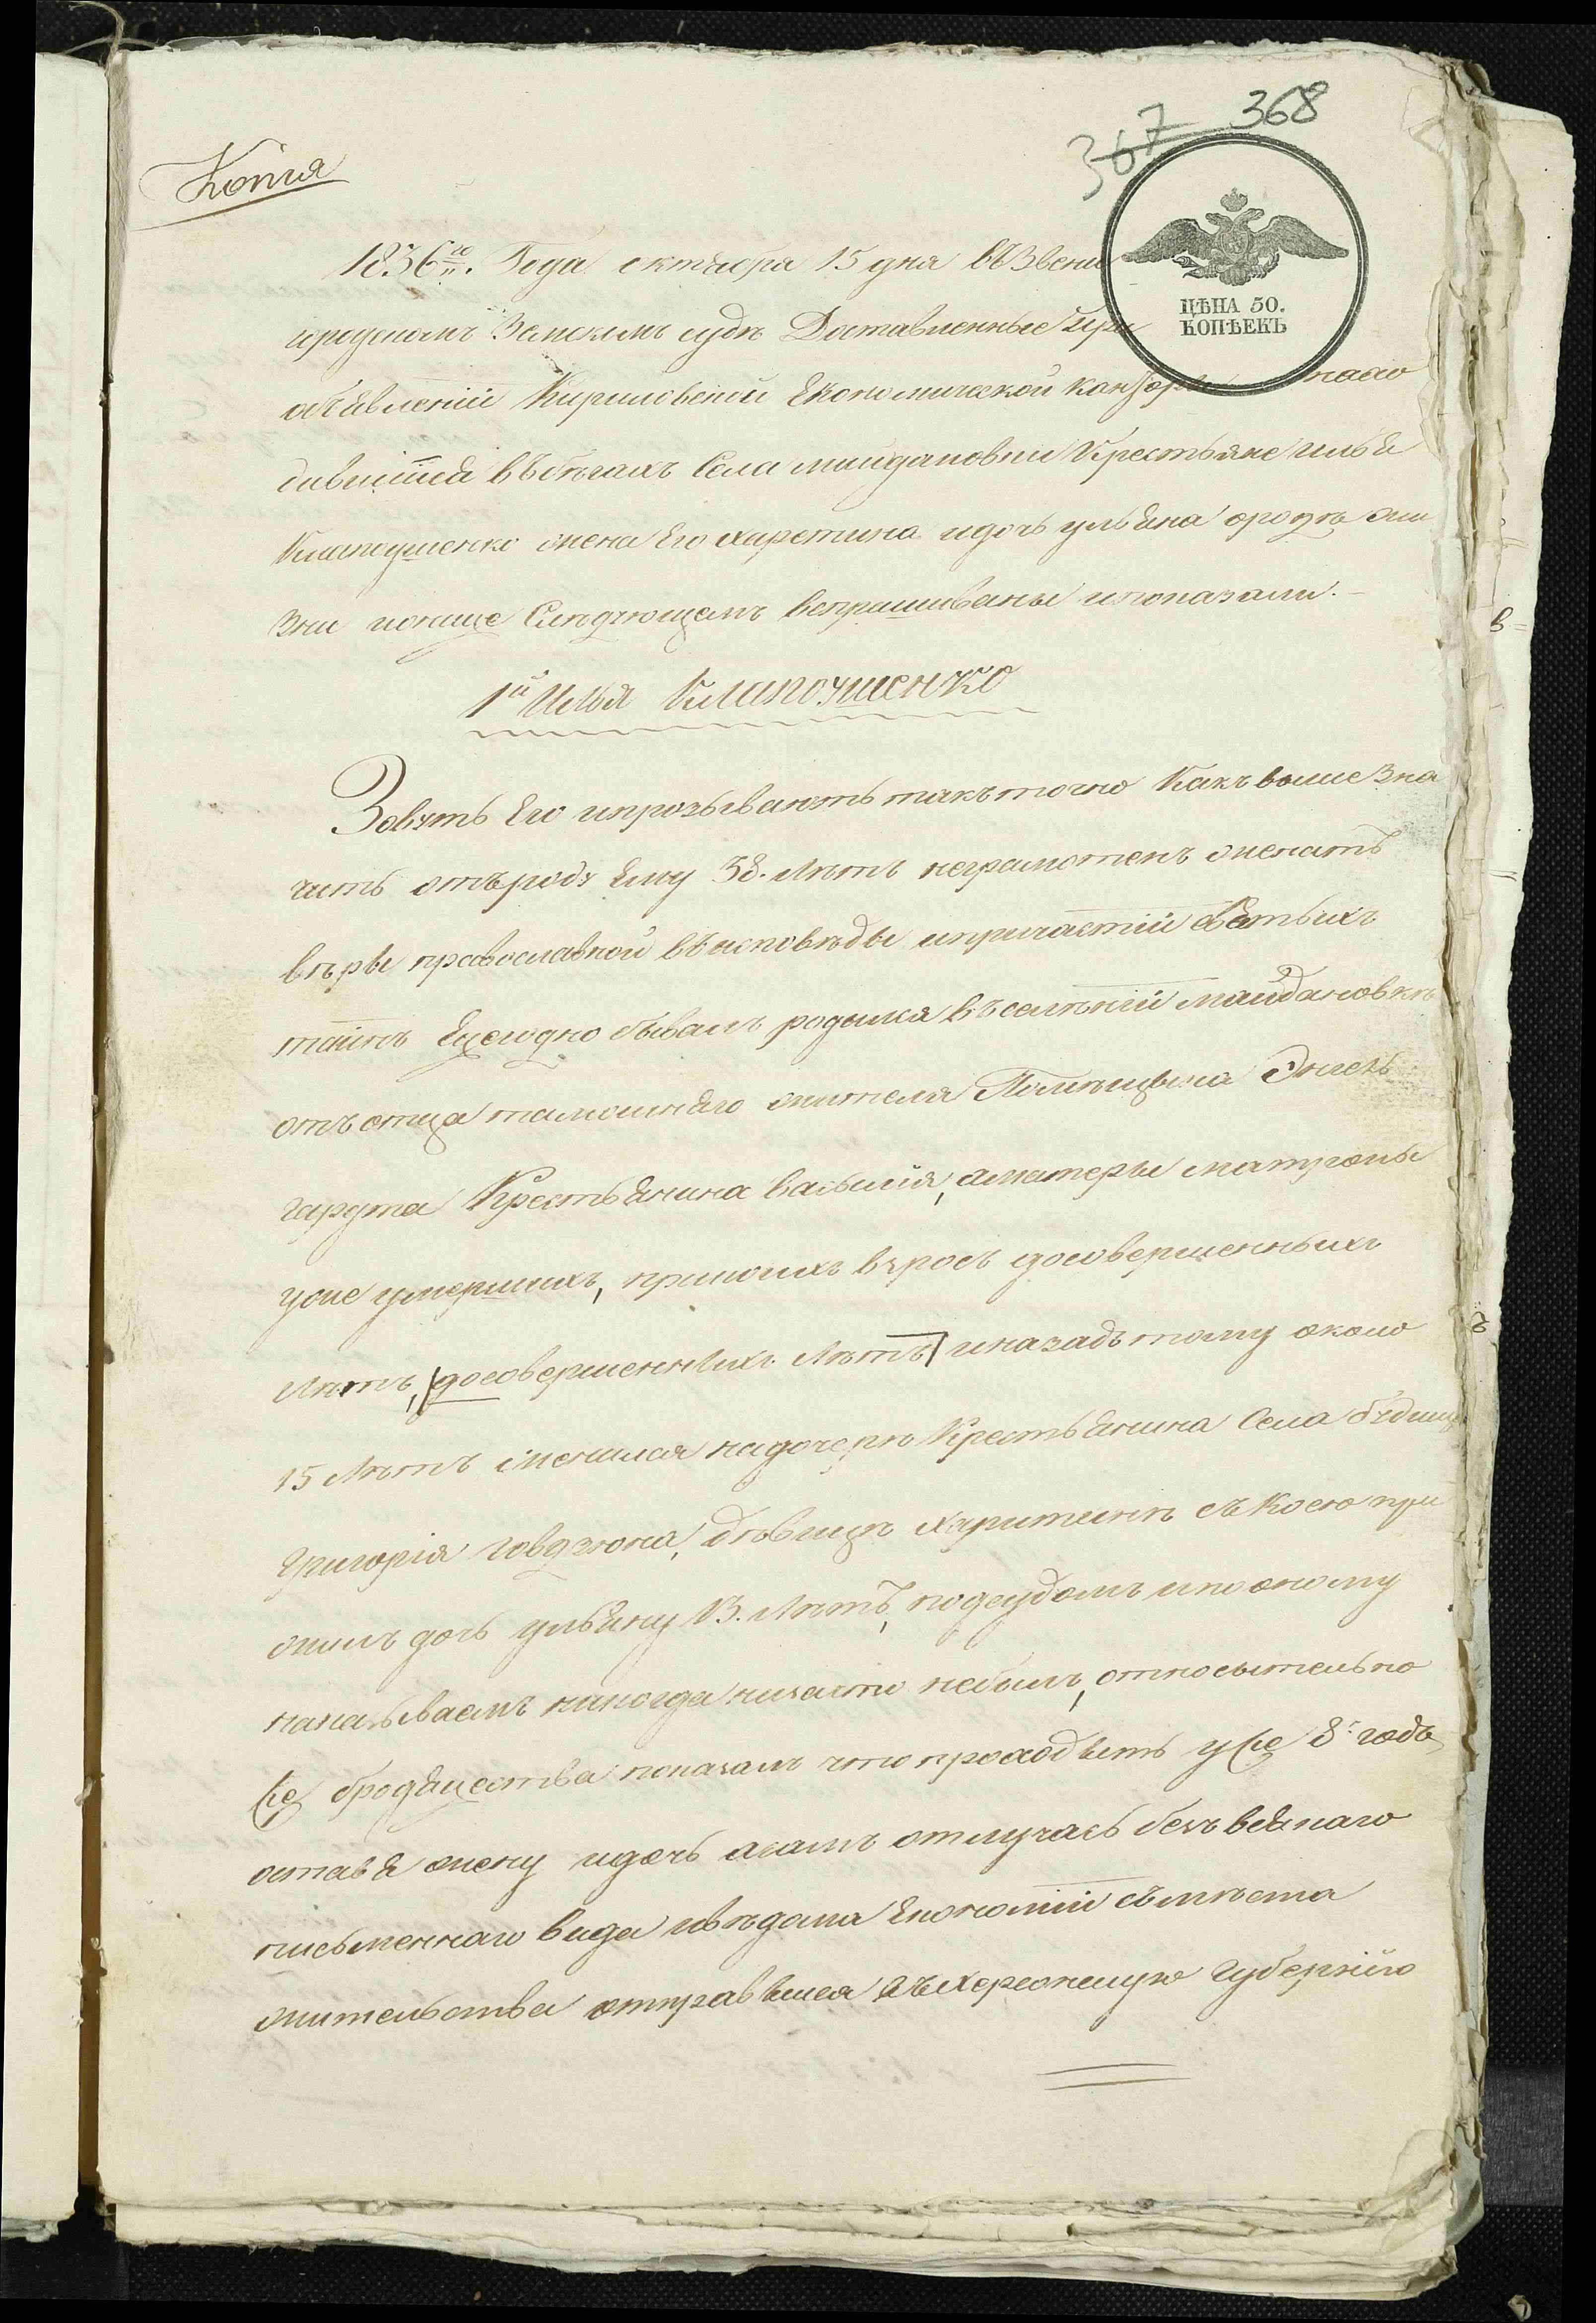 367 368
Копія
ЦѢНА 50.
КОПѢЕКЪ
1836го. Года октября 15 дня въ Звени
городскомъ Земскомъ судѣ Доставленные при
объявленіи Кириловской Економической Канторы нахо
дившіися въ бѣгахъ Села майдановки Крестьяне илья
Клапоушенко жена Его харетина и дочь ульяна о родѣ жи
зни и ониже Слѣдующемъ вспрашиваны и показали.
1й Илья Клапоушенко
Зовутъ Его и прозываютъ такъ точно Какъ выше Зна
читъ отъ роду Ему 38. Лѣтъ неграмотенъ женатъ
вѣры православной въ исповѣды и причастіи Святыхъ
таинъ Ежегодно бывалъ родился въ селѣніи майдановкѣ
отъ отца тамошняго жителя Помѣщыка Энгель
гардта Крестьянина васылія, а матеры матроны
уже умершихъ, при коихъ взросъ до совершенныхъ
Лѣтъ, до совершенныхъ Лѣтъ и назадъ тому около
15 Лѣтъ женился на дочерѣ Крестьянина Села будищ
Григорія говдзюна, дѣвицѣ харитинѣ съ Коею при
жилъ дочь ульяну 13. Лѣтъ, подсудомъ и по оному
наказываемъ никогда ни за что небылъ, относытельно
же бродяжества показалъ что проходытъ уже 8й годъ,
оставя жену и дочь а самъ отлучась безъ всякаго
письменнаго вида и вѣдома Економіи съ мѣста
жительства отправылся въ херсонскую Губернію